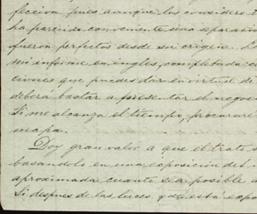 ficcion pues aunque los considero
ha parecido conveniente una separación
fueron perfectos desde su origen.
mi informe en inglés, completado
que puedes dar en virtud de
deberá bastar a presentar el negocio
Si me alcanza el tiempo, procuraré
mapa.
Doy gran valor a que el trato s
basandolo en una esposicion del
aproximada cuanto sea posible a
Si despues de las luces, y está espo